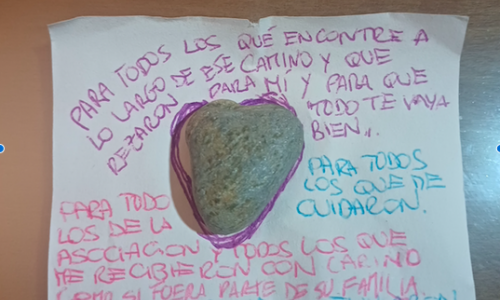 PARA TODOS LOS QUÉ ENCONTRE A
LO LARGO DE ESE CAMINO Y QUE
REZARON PARA MÍ Y PARA QUE
TODO TE VAYA
BIEN...
PARA TODOS
LOS QUE ME
CUIDARON.
PARA TODO
LOS DE LA
ASOCIACION Y TODOS LOS QUE
ME RECIBIERON CON CARIÑO
COMO SI FUERA PARTE DE SU FAMILIA